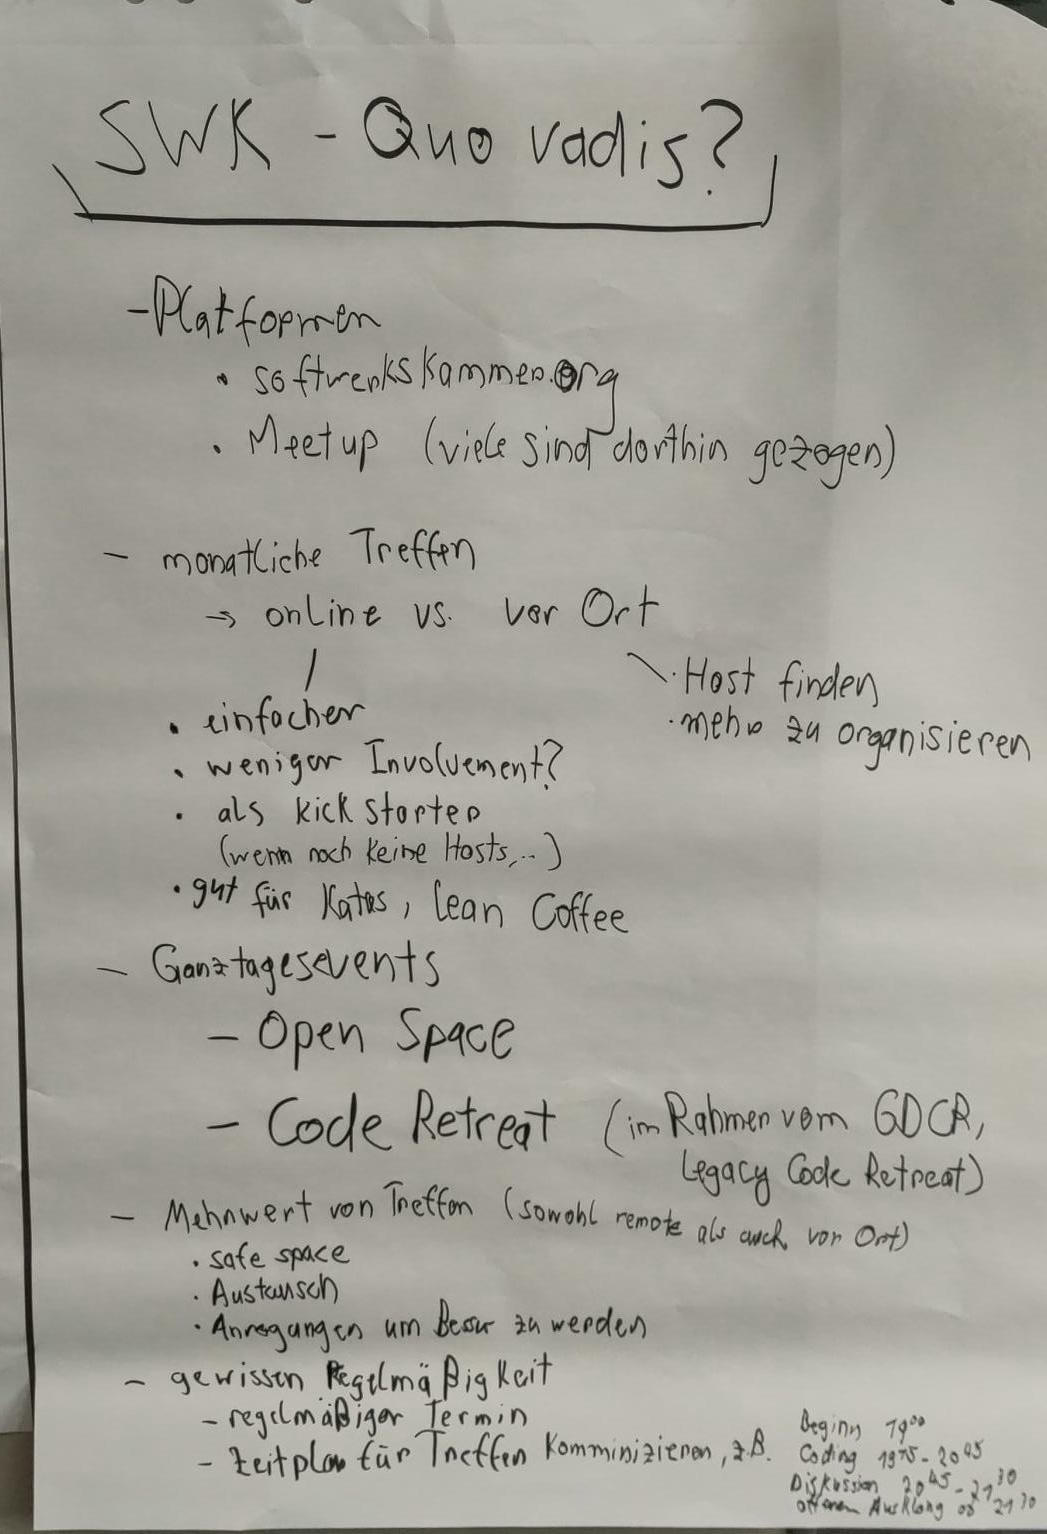 SWK - Quo vadis?
- Platformen
• softwerkskammer.org
• Meetup (viele sind dorthin gezogen)
- monatliche Treffen
→ online vs. vor Ort
• Host finden
• mehr zu organisieren
• einfacher
• weniger Involvement?
• als kick starter
(wenn noch keine Hosts,..)
• gut für Katas, Lean Coffee
- Ganztagesevents
- Open Space
- Code Retreat (im Rahmen vom GDCR,
Legacy Code Retreat)
- Mehrwert von Treffen (sowohl remote als auch vor Ort)
• safe space
• Austausch
• Anregungen um Besser zu werden
- gewissen Regelmäßigkeit
- regelmäßiger Termin
- Zeitplan für Treffen Komminizieren, z.B.
Beginn 19⁰⁰
Coding 19¹⁵ - 20⁴⁵
Diskussion 20⁴⁵ - 21³⁰
offenen Ausklang ab 21³⁰